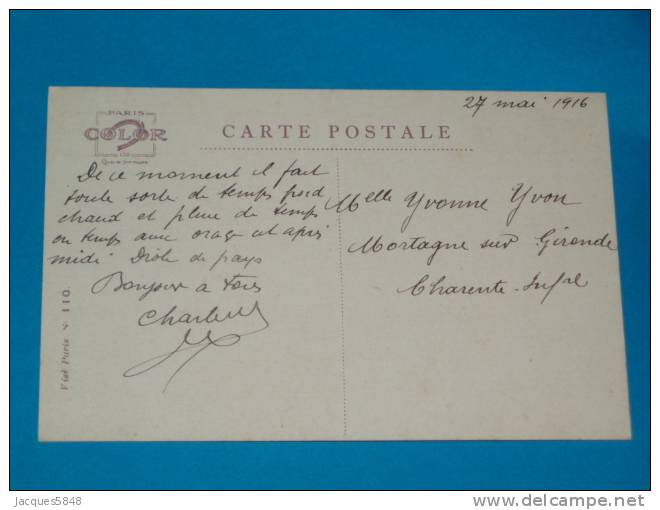 27 mai 1916
PARIS
COLOR
CARTE POSTALE
De ce moment il fait
toute sorte de temps froid
chaud et pluie de temps
en temps avec orage cet après
midi Drôle de pays
Bonjour a tous
Melle Yvonne Yvon
Mortagne sur Gironde
Charente-Infre
Visé Paris N° 110.
Jacques5848
delcampe.net